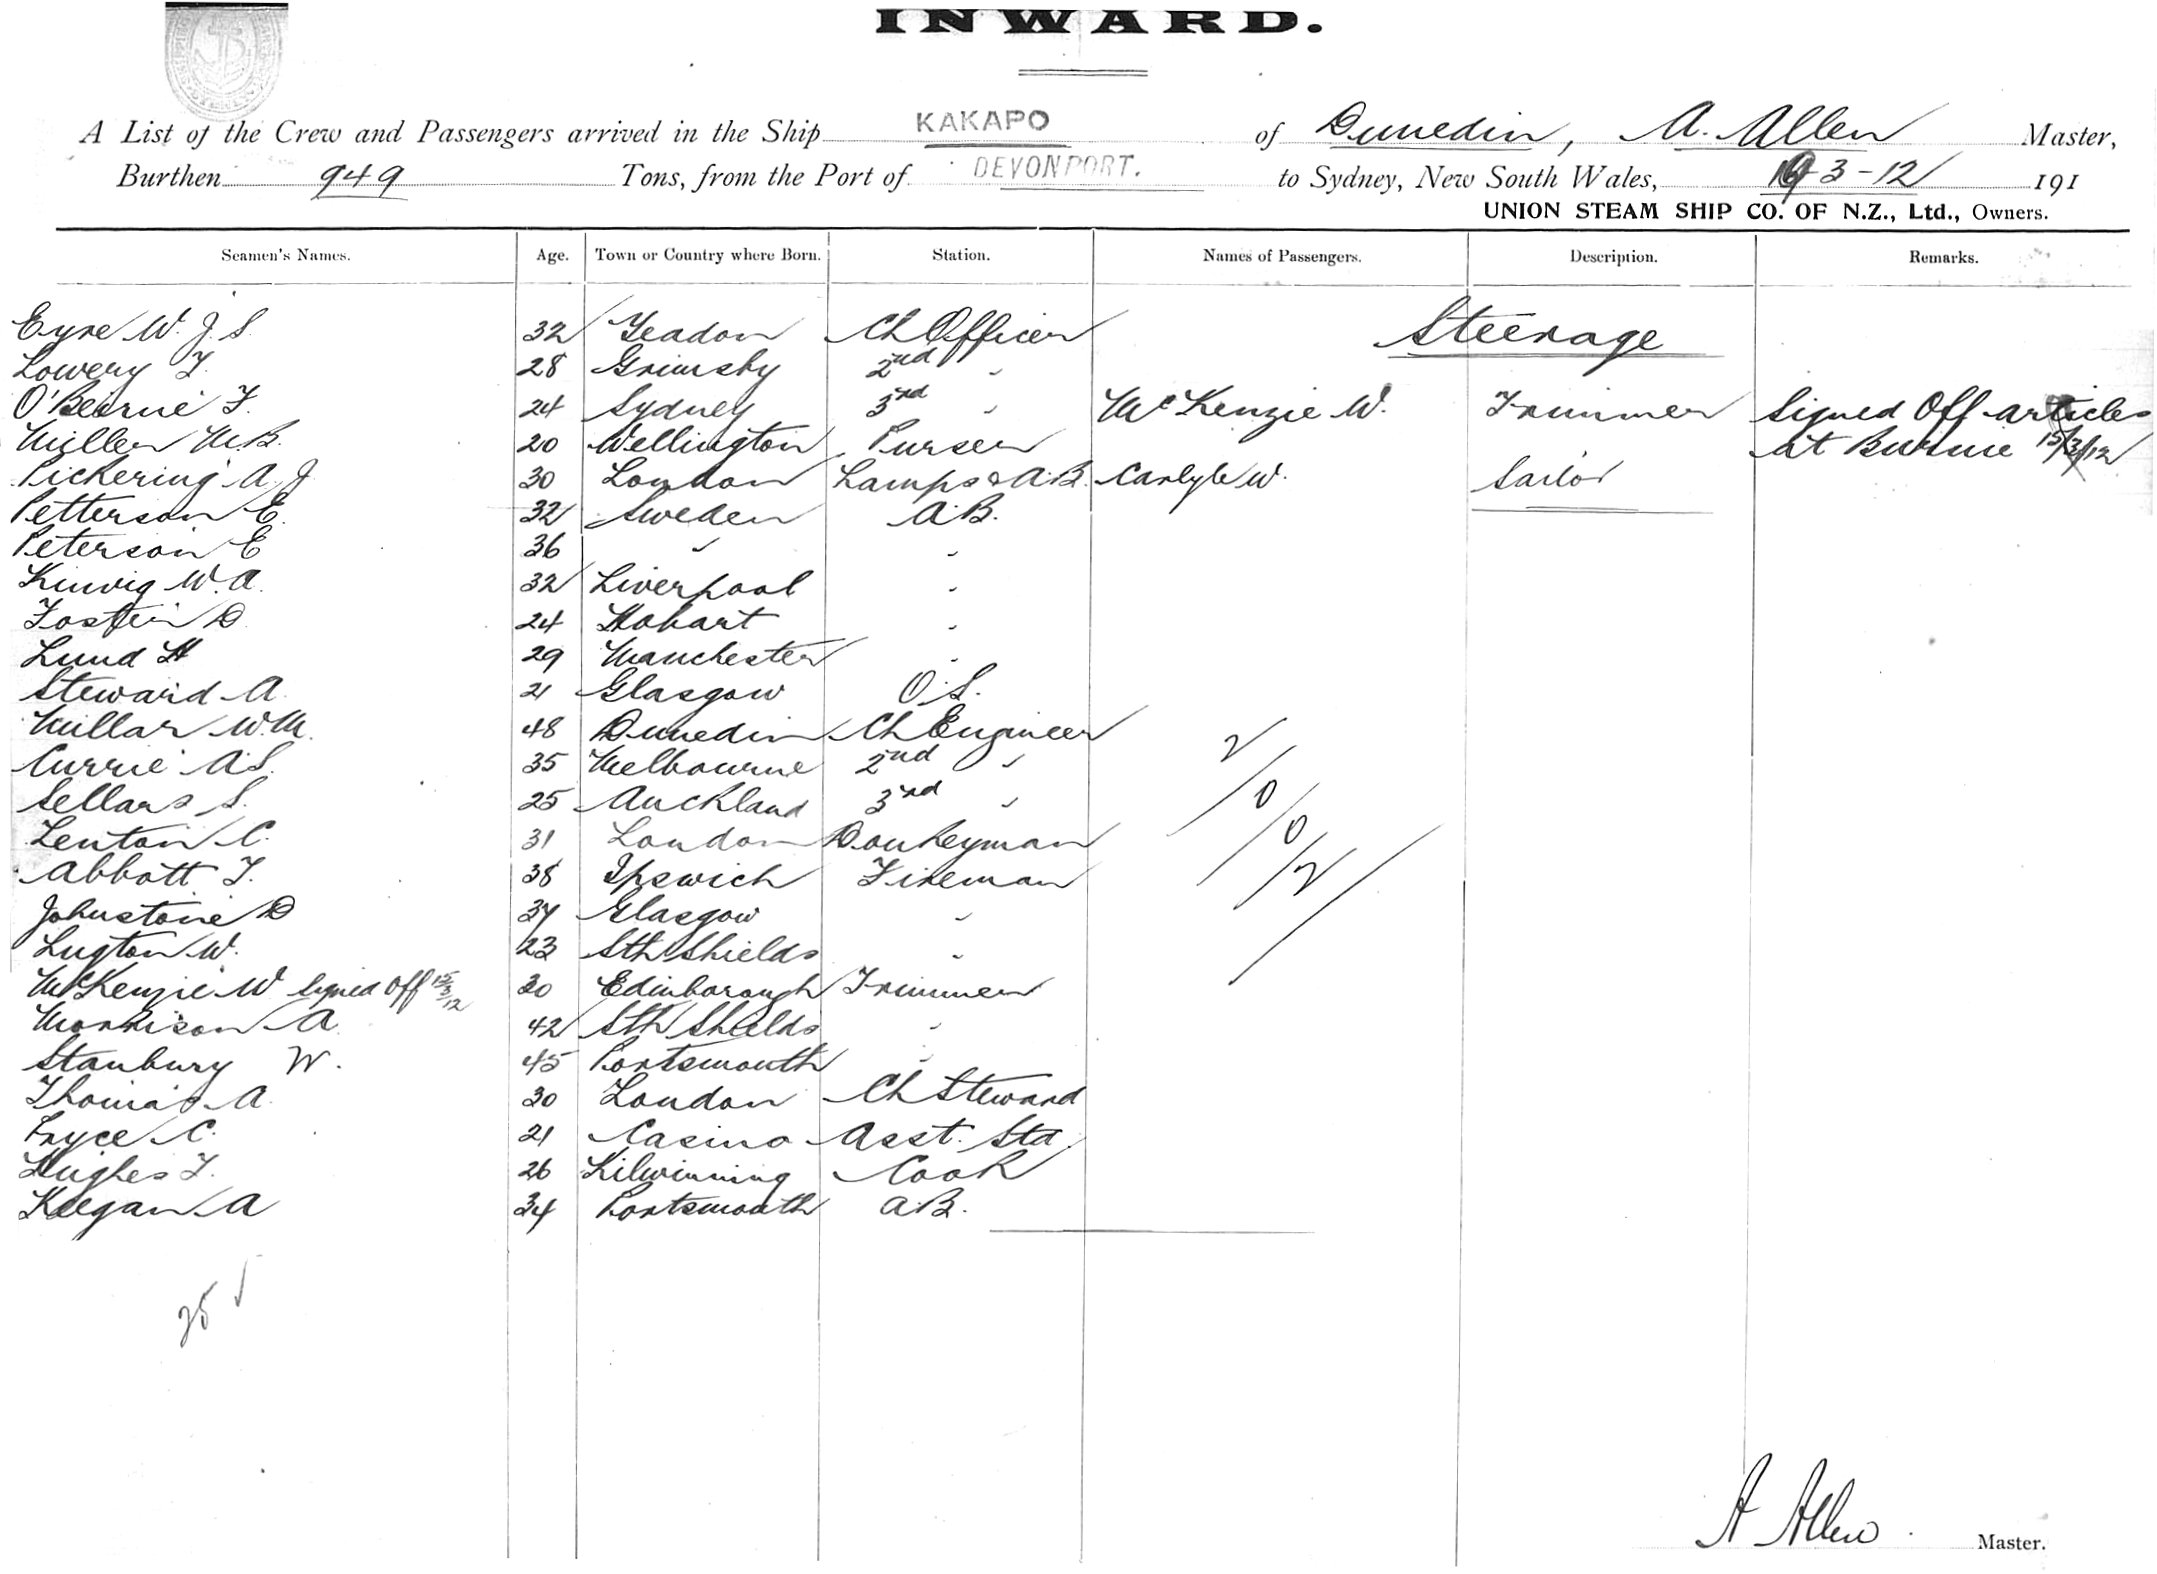 INWARD.
A List of the Crew and Passengers arrived in the Ship KAKAPO of Dunedin, A. Allen Master,
Burthen 949 Tons, from the Port of DEVONPORT. to Sydney, New South Wales, 3-12 191
UNION STEAM SHIP CO. OF N.Z., Ltd., Owners.
Seamen's Names. Age. Town or Country where Born. Station. Names of Passengers. Description. Remarks.
Steerage
Eyre W. J. S. 32 Yeadon Ch Officer
Lowery F. 28 Grimsby 2nd "
O'Beirne F. 24 Sydney 3rd " McKenzie W. Trimmer Signed Off articles
Miller M.B. 20 Wellington Purser at Burnie 15/3/12
Pickering A. J 30 London Lamps & A.B. Carlyle W. Sailor
Petterson E. 32 Sweden A.B.
Peterson E 36 " "
Kinvig W. A. 32 Liverpool "
Foster D 24 Hobart "
Lund H 29 Manchester "
Steward A. 21 Glasgow O.S.
Millar W.M. 48 Dunedin Ch Engineer
Currie A.S. 35 Melbourne 2nd "
Sellars S. 25 Auckland 3rd "
Lenton C. 31 London Donkeyman
Abbott F. 38 Ipswich Fireman
Johnstone D 37 Glasgow "
Lugton W. 23 Sth Shields "
McKenzie W Signed Off 15/3/12 20 Edinborough Trimmer
Morrison A. 42 Sth Shields "
Stanbury W. 45 Portsmouth "
Thomas A. 30 London Ch Steward
Pryce C. 21 Casino Asst. Std.
Hughes F. 26 Kilwinning Cook
Keegan A 34 Portsmouth A.B.
2/0/0/2/
25
A Allen Master.